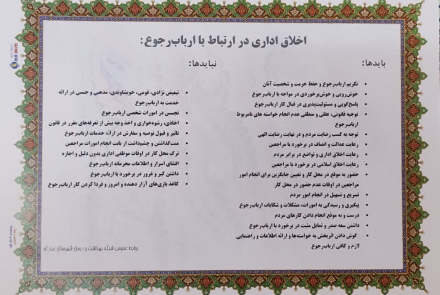 اخلاق اداری در ارتباط با ارباب رجوع:
بایدها:
تکریم ارباب رجوع و حفظ حرمت و شخصیت آنان
خوش‌رویی و خوش‌برخوردی در مواجه با ارباب رجوع
پاسخ‌گویی و مسئولیت‌پذیری در قبال کار ارباب رجوع
توجیه قانونی، عقلی و منطقی عدم انجام خواسته های نامربوط
ارباب رجوع
توجه به کسب رضایت مردم و در نهایت رضایت الهی
رعایت عدالت و انصاف در برخورد با مراجعین
رعایت اخلاق اداری و تواضع در برابر مردم
رعایت اخلاق اسلامی در برخورد با مراجعین
حضور به موقع در محل کار و تعیین جایگزین برای انجام امور
مراجعین در اوقات عدم حضور در محل کار
تسریع و تسهیل در انجام امور مردم
پیگیری و رسیدگی به امورات، مشکلات و شکایات ارباب رجوع
درست و به موقع انجام دادن کارهای مردم
داشتن سعه صدر و تمایل مثبت در برخورد با ارباب رجوع
گوش دادن اثربخش به خواسته‌ها و ارائه اطلاعات و راهنمایی
لازم و کافی ارباب رجوع
نبایدها:
تبعیض نژادی، قومی، خویشاوندی، مذهبی و جنسی در ارائه
خدمت به ارباب رجوع
تجسس در امورات شخصی ارباب رجوع
اخاذی، رشوه‌خواری و اخذ وجه بیش از تعرفه‌های مقرر در قانون
تاثیر و قبول توصیه و سفارش در ارائه خدمات ارباب رجوع
منت‌گذاشتن و چشم‌داشت از بابت انجام امورات مراجعین
ترک محل کار در اوقات موظفی اداری بدون دلیل و اجازه
افشای اسرار و اطلاعات محرمانه ارباب رجوع
داشتن کبر و غرور در برخورد با ارباب رجوع
کاغذ بازی‌های آزار دهنده و امروز و فردا کردن کار ارباب رجوع
روابط عمومی شبکه بهداشت و درمان شهرستان